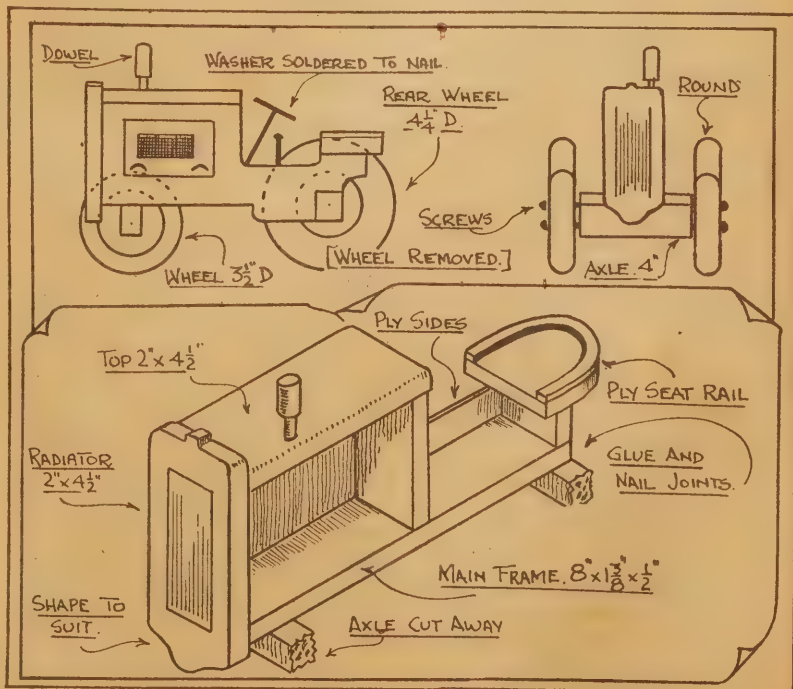 DOWEL
WASHER SOLDERED TO NAIL.
REAR WHEEL
4¼" D.
ROUND
SCREWS
[WHEEL REMOVED.]
WHEEL 3½" D
AXLE. 4"
PLY SIDES
TOP 2" x 4½"
PLY SEAT RAIL
RADIATOR
2" x 4½"
GLUE AND
NAIL JOINTS.
MAIN FRAME. 8" x 1⅜" x ½"
SHAPE TO
SUIT.
AXLE CUT AWAY